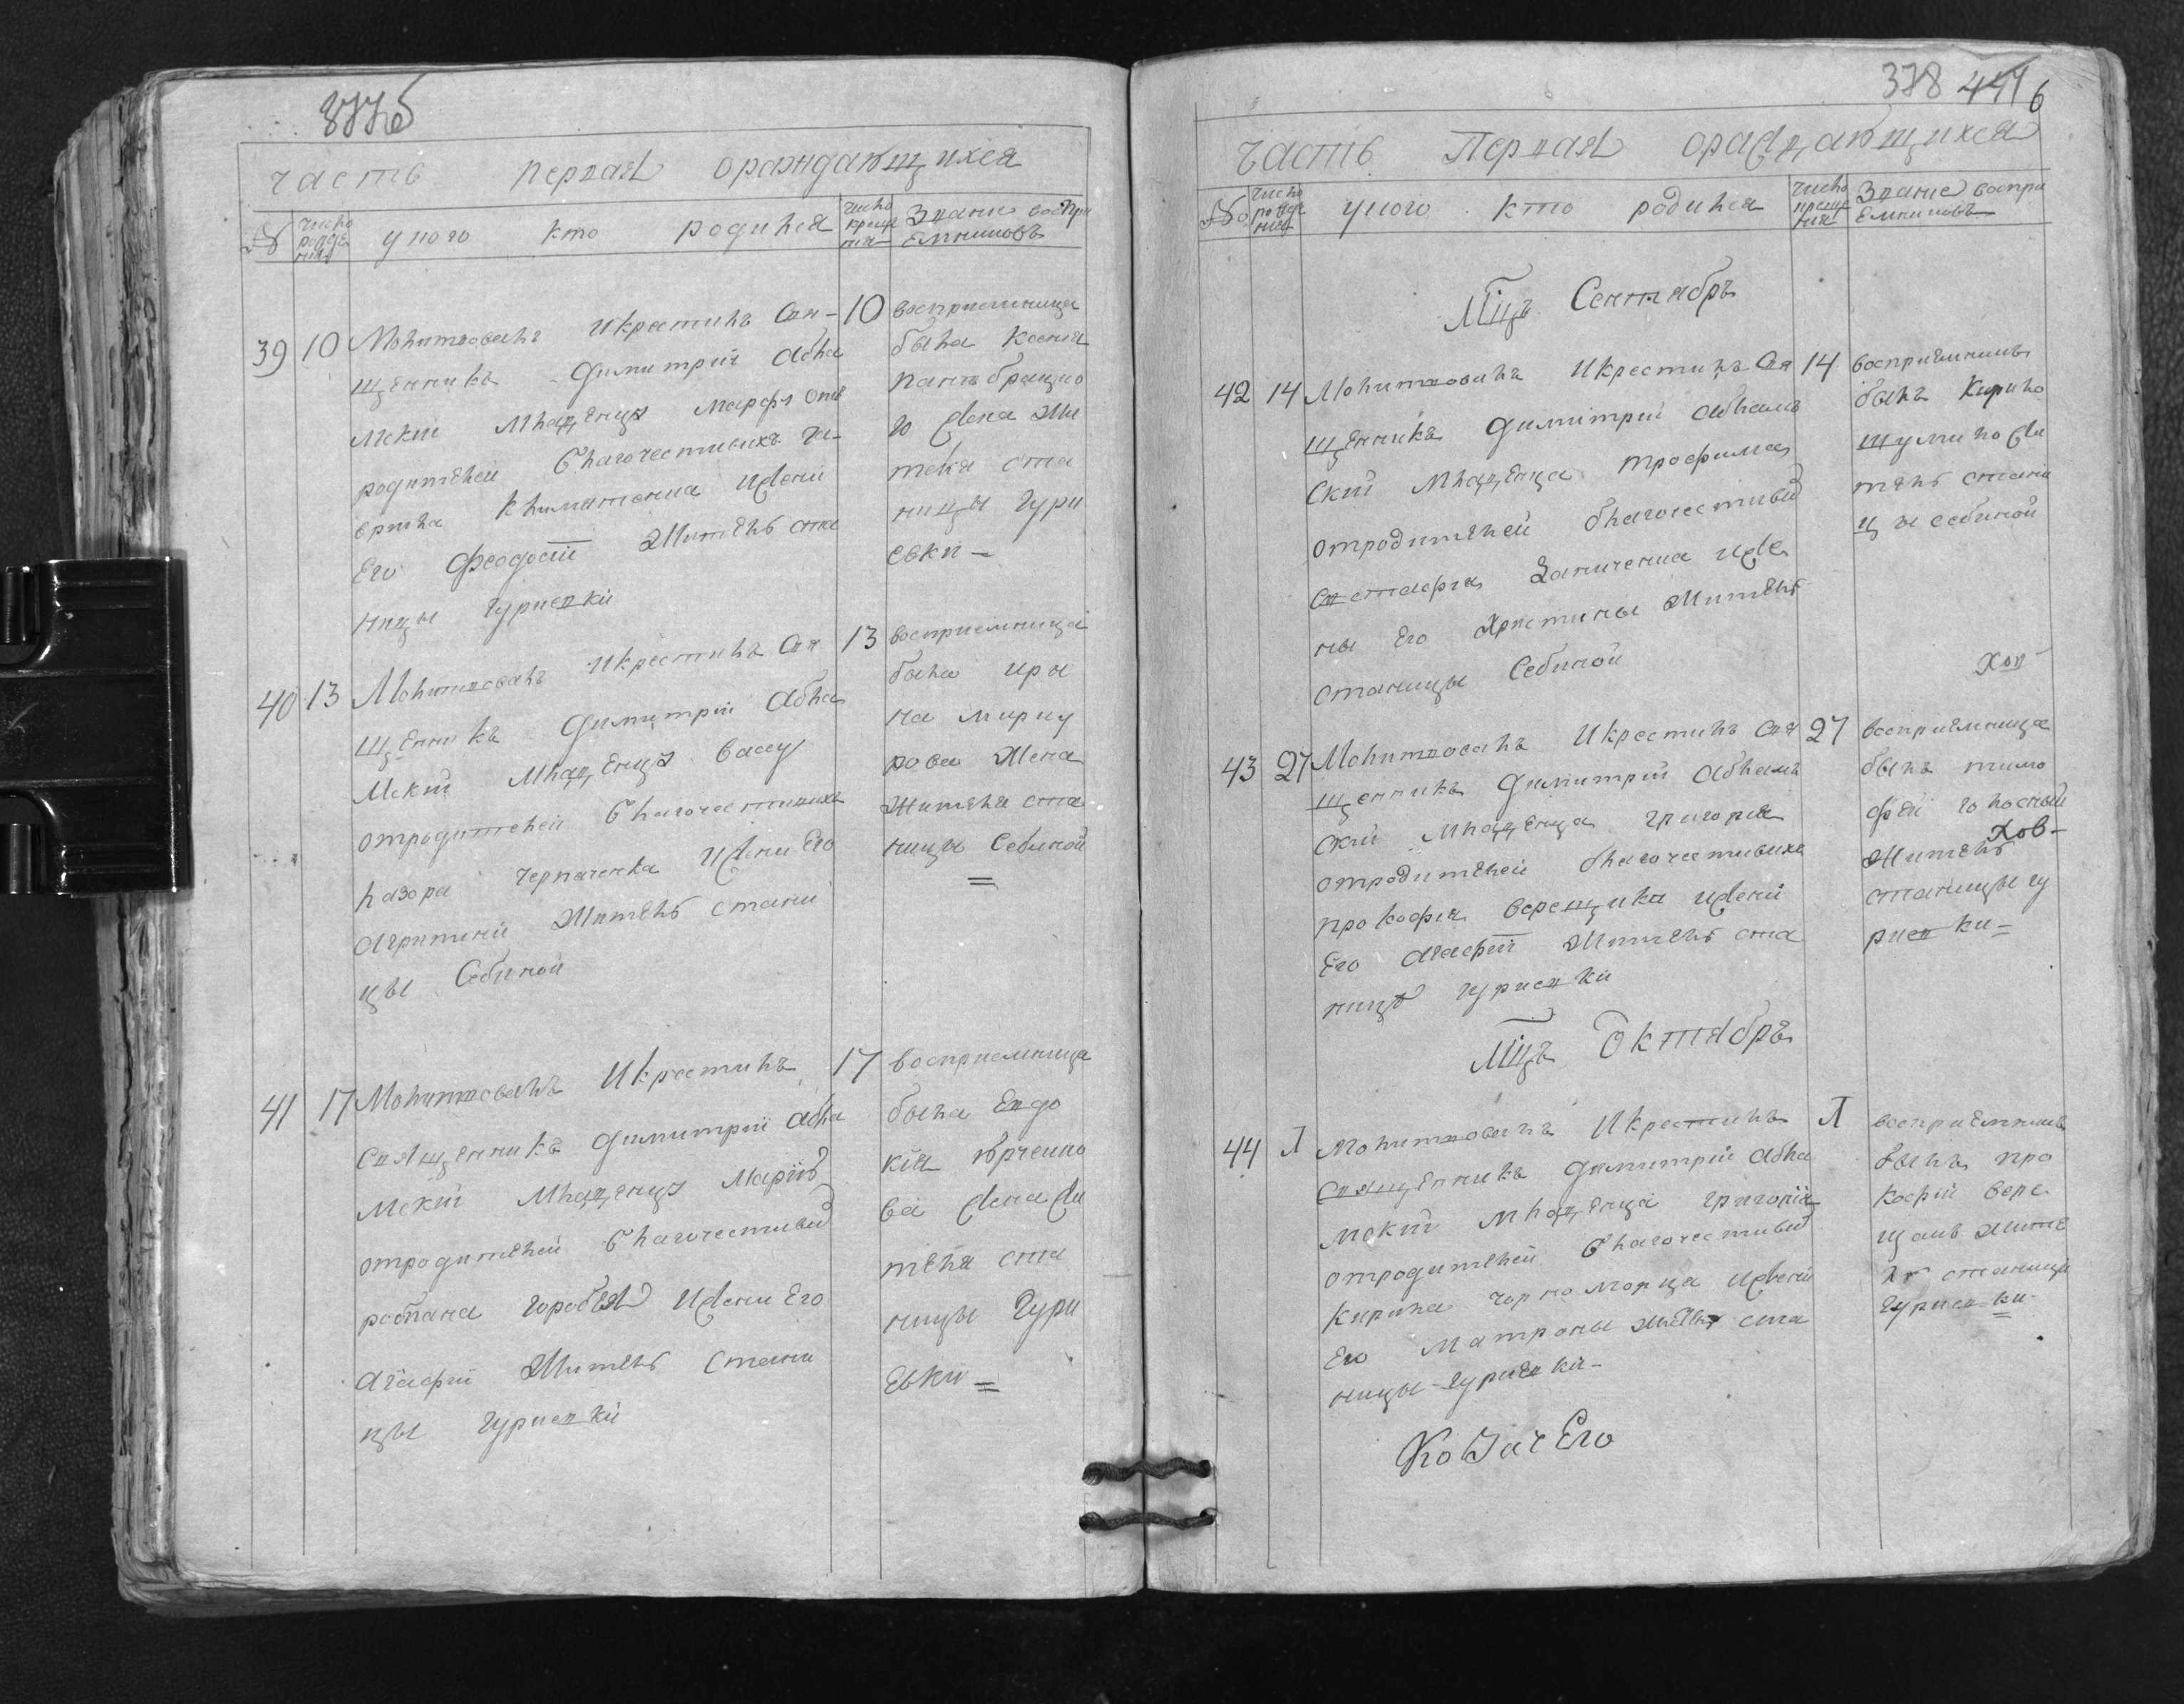 377об
часть первая ораждающихся
№ число рожде ния у кого кто родился число креще ния Звание воспри емниковъ
39 10 Молитвовалъ икрестилъ Свя- 10
щенникъ Димитрій Абла
мскій младенца марфу отъ
родителей благочестивихъ га-
врила климатенка иЖени
Его Феодосіи Жителъ ста
ницы Гуриевки
восприемница
была ксенія
панъбрацко
го Жена Жи
теля ста
ницы Гури
евки -
40 13 Молитвовалъ икрестилъ Свя 13
щенникъ Димитрій Абла
мскій младенца васу
отродителей благочестивихъ
лазора черначенка иЖени Его
агрипини Жителъ стани
цы Себиной
восприемница
была ири
на мирну
рова Жена
Жителя ста
ницы Себиной
=
41 17 Молитвовалъ Икрестилъ 17
Священникъ Димитрій Абла
мскій младенца Марію
отродителей благочестивых
романа горобея иЖени Его
Агафіи Жителъ стани
цы Гуриевки
восприемница
была Евдо
кія юрченко
ва Жена Жи
теля ста
ницы Гури
Евки =
378 6
часть Первая ораждающихся
№ число рожде ния у кого кто родился число креще ния Звание воспри емниковъ
Мцъ Сентябръ
42 14 Молитвовалъ Икрестилъ Свя 14
щенникъ Димітрій Аблам
ский младенца трофима
отродителей благочестивых
Євстафія Заниченка иЖе
ны Его Христины Жителъ
станицы Себиной
восприемникъ
былъ Кирило
шумило Жи
тель стани
цы себиной
43 27 Молитвовалъ Икрестилъ Свя 27
щенникъ Димитрій Аблам
ский младенца григорія
отродителей благочестивихъ
прокофія верещика иЖени
Его Агафіи Жителъ ста
ницы гуриевки
восприемница
былъ тимо
фей голосный
Жителъ
станицы гу
риевки =
Мцъ Октябръ
44 Молитвовалъ Икрестилъ
Священникъ Димитрій Абла
мскій младенца григорія
отродителей благочестивых
Кирила чорноморца иЖени
Его матроны жителъ ста
ницы гуриевки-
восприемникъ
былъ про
кофій вере
щакъ жите
лъ станици
гуриевки-